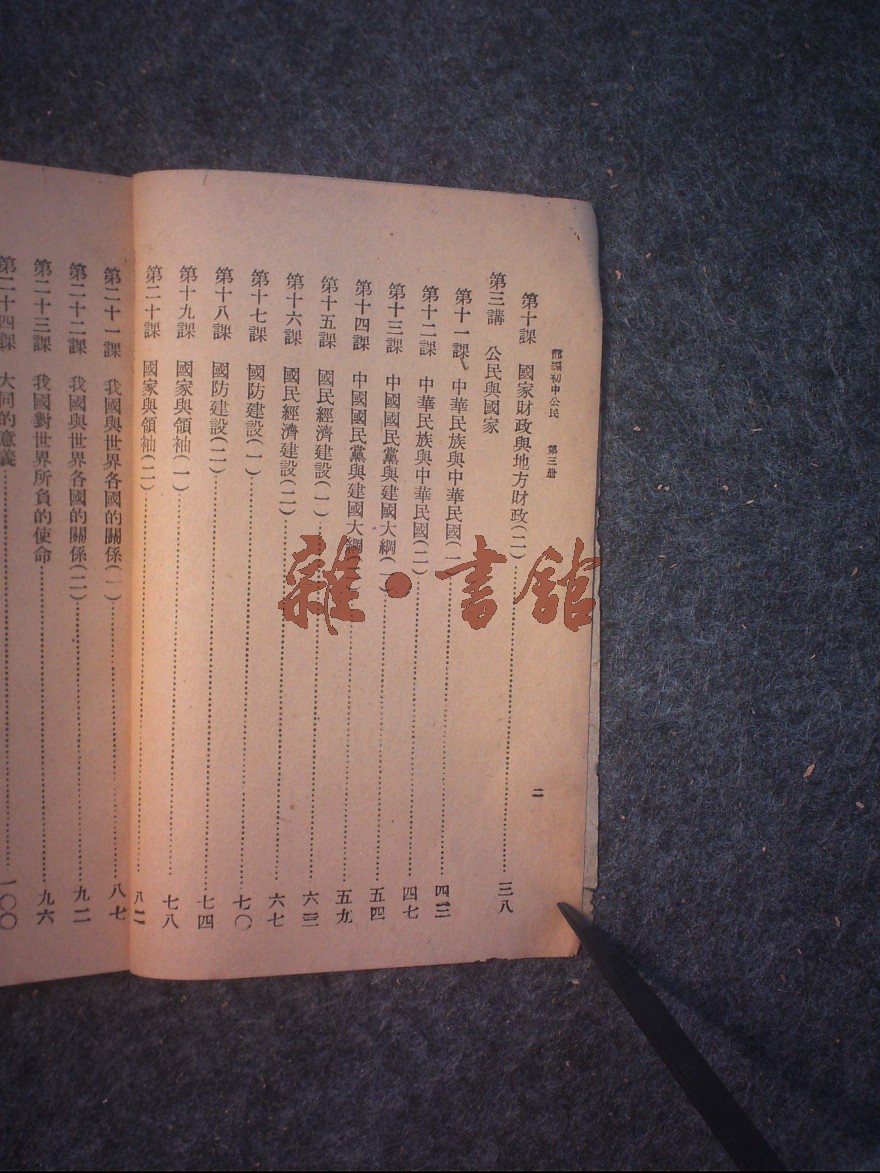 部編初中公民 第三册
二
第十課 國家財政與地方財政(二)……三八
第三講 公民與國家
第十一課 中華民族與中華民國(一……四三
第十二課 中華民族與中華民國(二)……四七
第十三課 中國國民黨與建國大綱(一)……五四
第十四課 中國國民黨與建國大綱……五九
第十五課 國民經濟建設(一)……六三
第十六課 國民經濟建設(二)……六七
第十七課 國防建設(一)……七〇
第十八課 國防建設(二)……七四
第十九課 國家與領袖(一)……七八
第二十課 國家與領袖(二)……八二
第二十一課 我國與世界各國的關係(一)……八七
第二十二課 我國與世界各國的關係(二)……九二
第二十三課 我國對世界所負的使命……九六
第二十四課 大同的意義……一〇〇
雜·書館